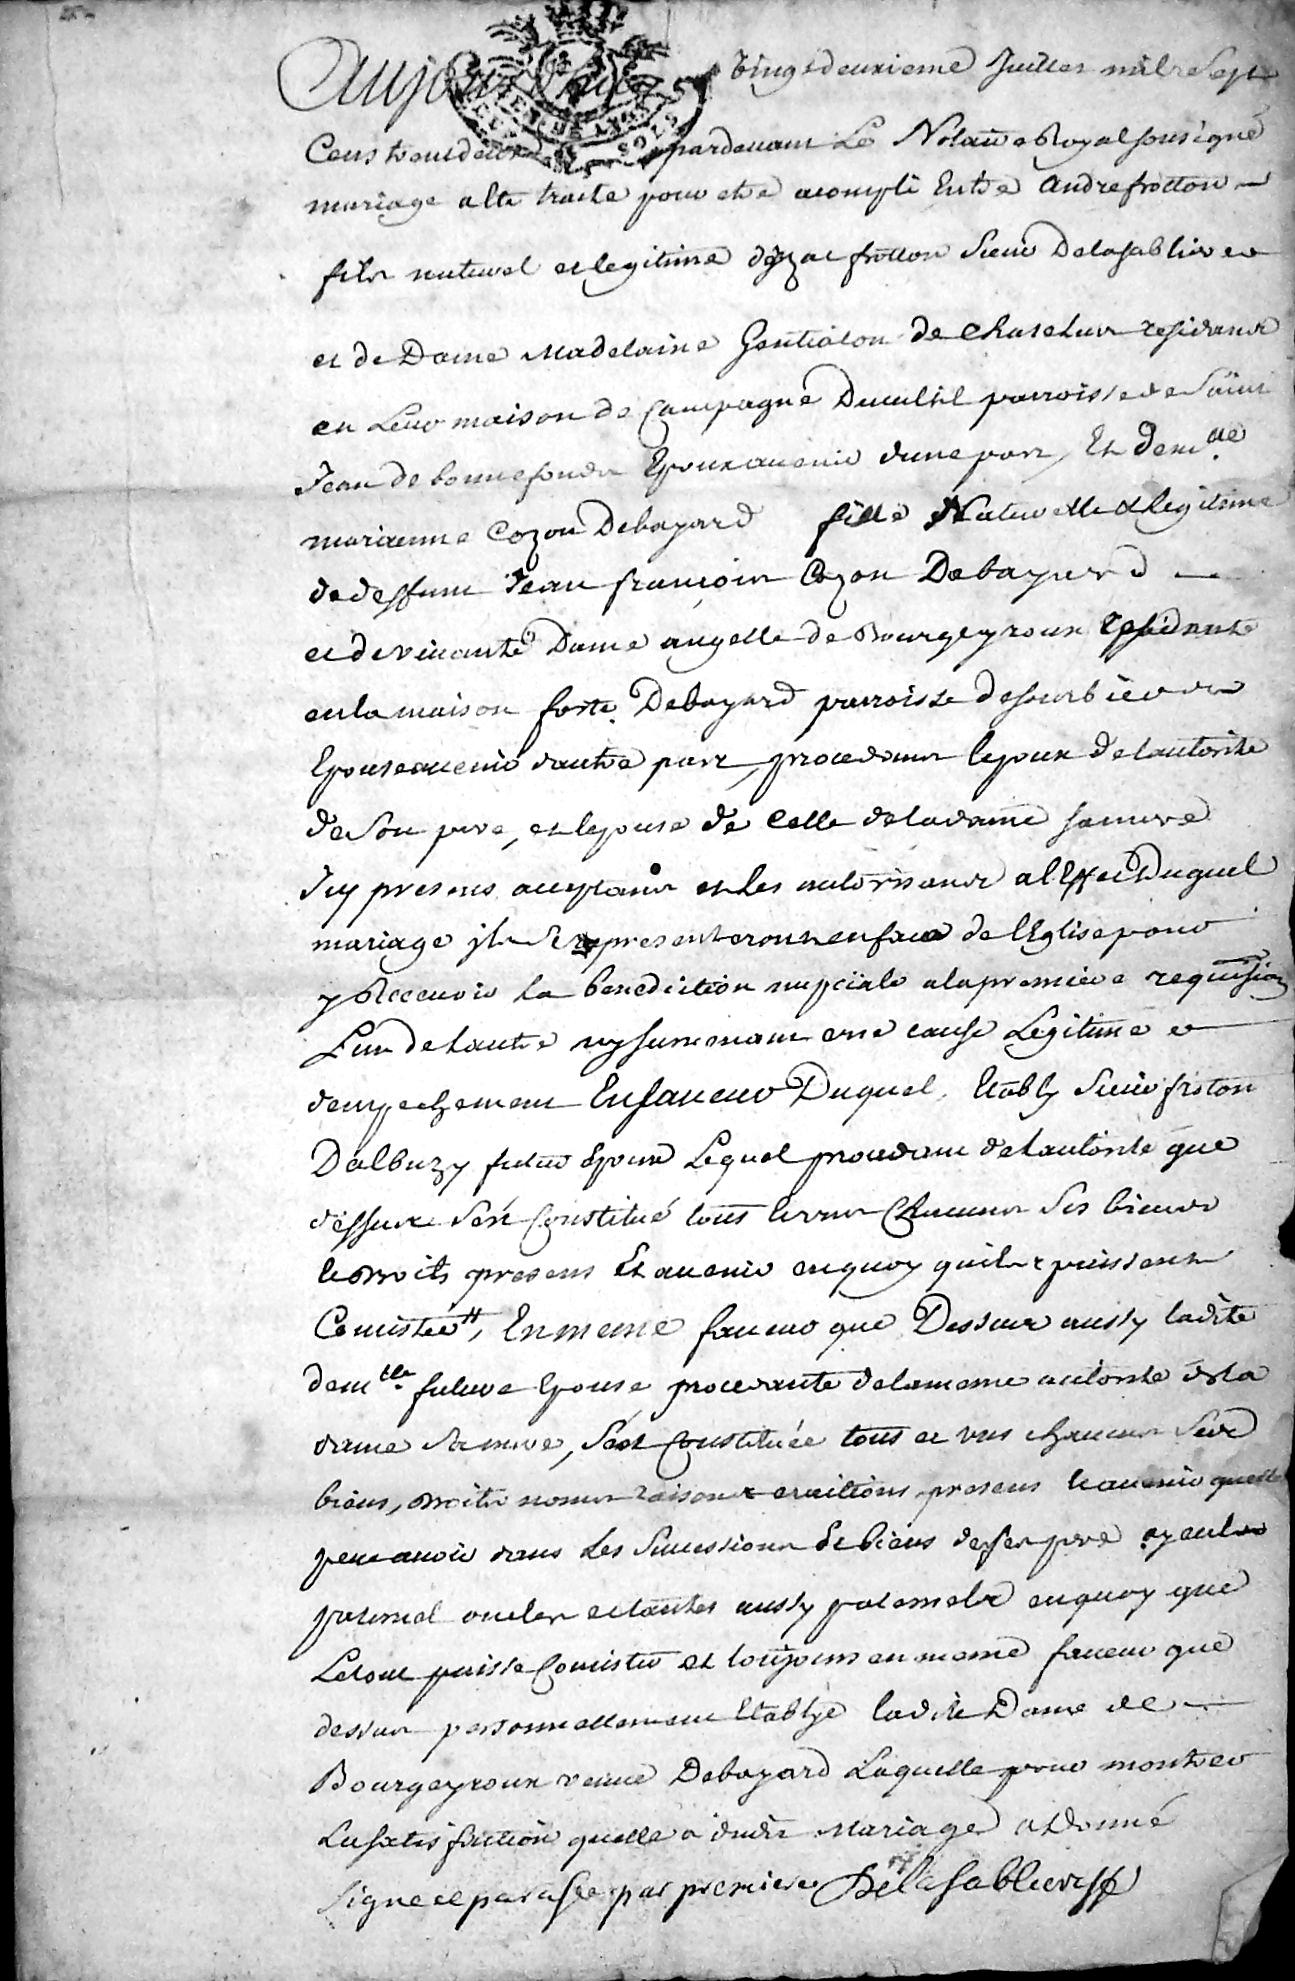 Aujourdhuy vingtdeuxieme Juillet mil Sept
Cens trentedeux pardevant Le Notaire Royal sousigné
mariage a eté traité pour etre acompli Entre Andre frotton
fils naturel et legitime dyzac frotton Sieur Delasabliere
et de Dame Madelaine Gentialon de Chasetaux residants
en Leur maison de Campagne parroisse de Saint
Jean de bonnefonds Epoux avenir dune part, Et dem.lle
marianne Cozon Debayard fille Naturelle & legitime
de deffunt Jean françois Cozon Debayard
et de vivante Dame angelle de Bourgeyroux residante
en la maison forte Debayard parroisse desourbiere
Epouse avenir dautre part, procedants lepoux de lautorité
de Son pere, et lepouse de Celle de ladame sa mere
Icy presens aceptants et les autorisants a lEffet Duquel
mariage ils Se representeront en face de lEglise pour
y Recevoir la benediction nupciale a la premiere requisition
Lun de lautre ny survenant cause Legitime
dempechement En faveur Duquel, Etably Sieur froton
Dalbuzy futur Epoux Lequel procedant de lautorité que
dessus Sest Constitué tous Chacuns Ses biens
droits presens Et avenir enquoy quils puissent
Consister, En meme faveur que Dessus aussy ladite
dem.lle future Epouse procedante de la meme autorité de la
dame Sa mere, Sest Constituée tous et uns chacuns Ses
biens, droits noms raisons et actions presens et avenir quelle
peut avoir dans les Successions et biens de son pere ayeul
paternel oncles et tantes aussy paternels enquoy que
Letout puisse Consister et toujours en meme faveur que
dessus personnellement Etablye ladite Dame de
Bourgeyroux veuve Debayard Laquelle pour montrer
La satisfaction quelle a dudit Mariage a Donné
Signé et paraffé par premiere Delasabliere